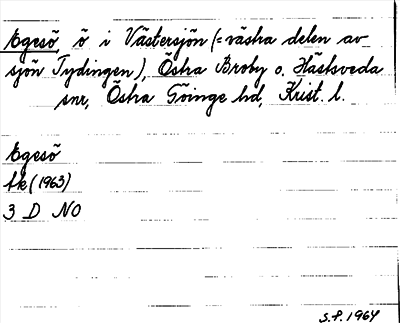 Egesö ö i Västersjön (= västra delen av
sjön Tydingen), Östra Broby o. Hästveda
snr, Östra Göinge hd, Krist. l.
Egesö
fk (1963)
3 D NO
S.P. 1964